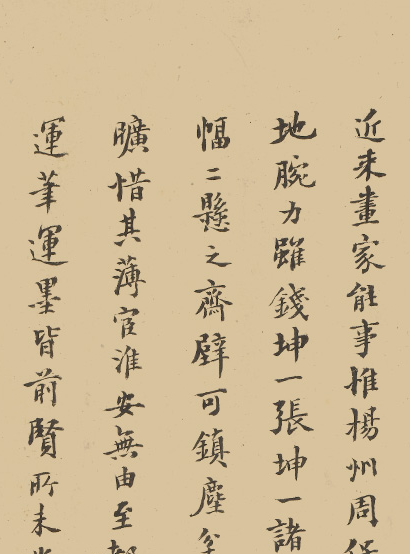 近来畫家能事惟楊州周
地腕力雖錢坤一張坤一諸
幅二懸之齋壁可鎮塵
曠惜其薄宦淮安無由至
運筆運墨皆前賢所未